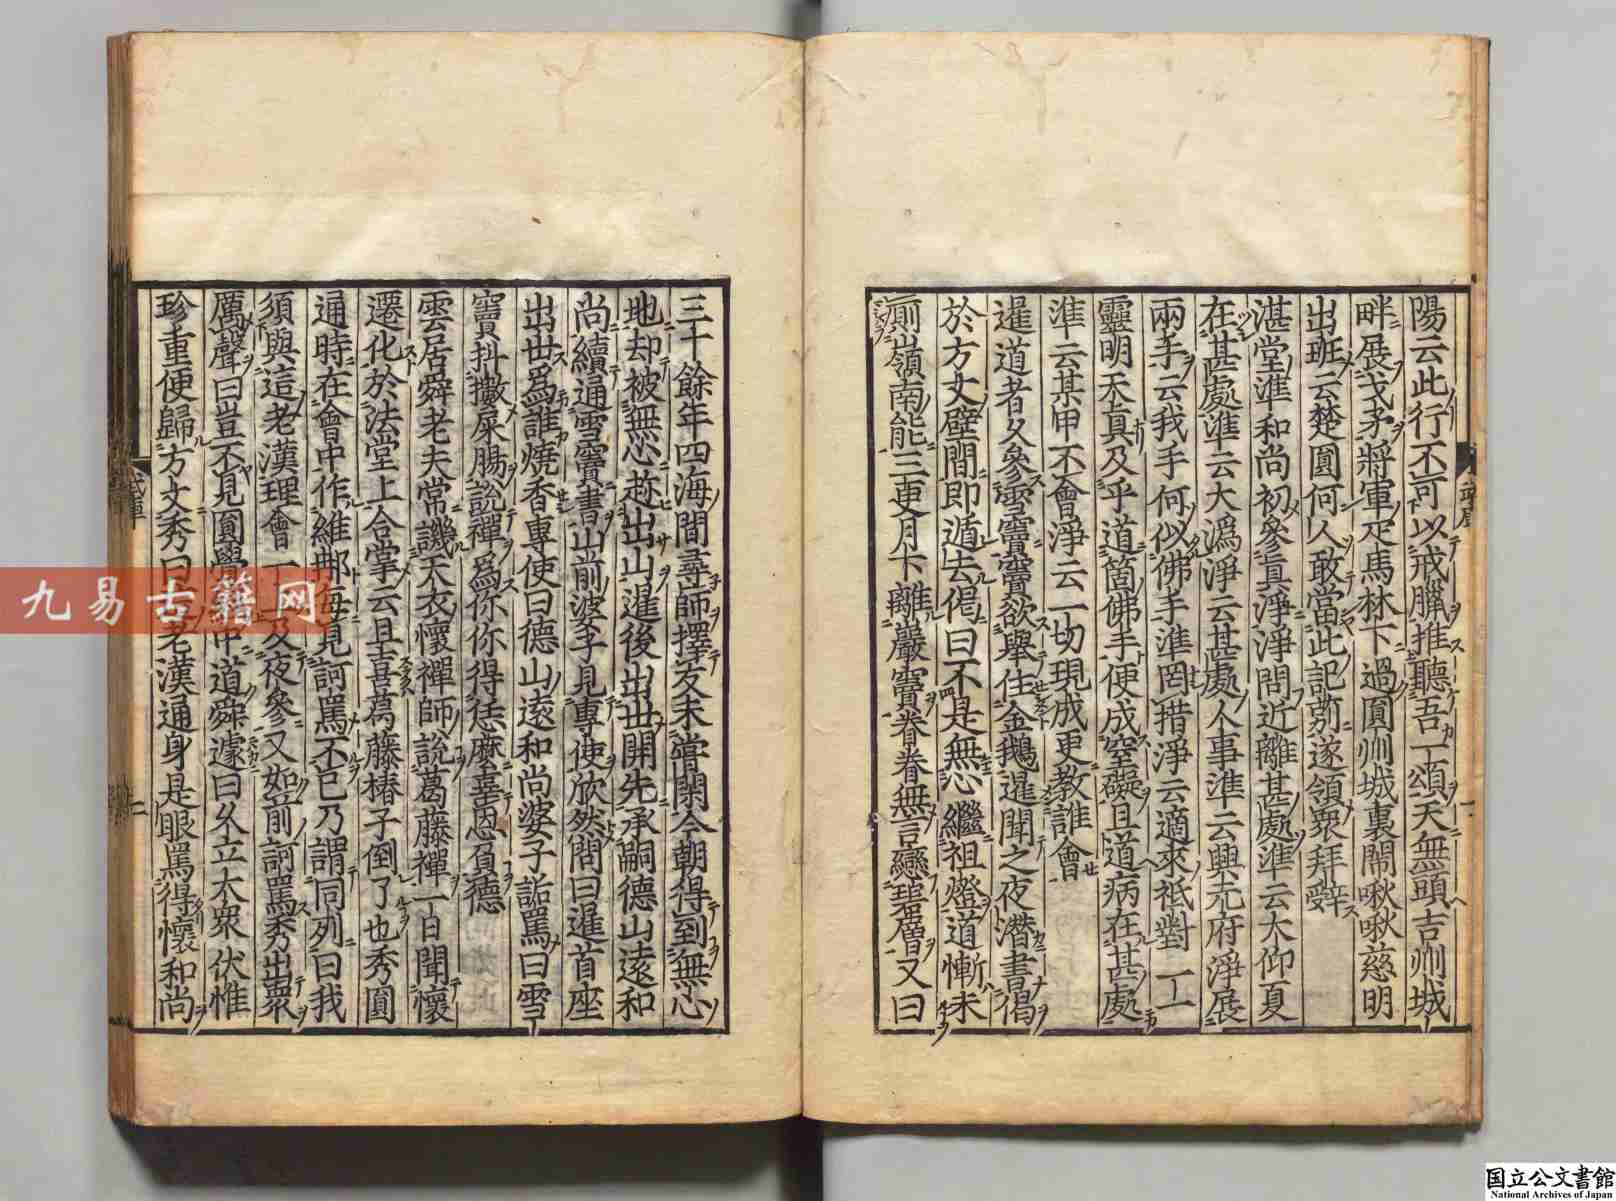 陽云此行不可以戒臘推聽吾一頌天無頭吉州城
畔展戈矛將軍疋馬林下過圓州城裏閙啾啾慈明
出班云楚圓何人敢當此記莂遂領衆拜辤
湛堂準和尚初參真淨淨問近離甚處準云大仰夏
在甚處準云大溈淨云甚處人事準云興元府淨展
兩手云我手何似佛手準罔措淨云適來祗對一一
靈明天真及乎道箇佛手便成窒礙且道病在甚處
準云某甲不會淨云一切現成更教誰會
暹道者久參雪竇竇欲舉住金鵝暹聞之夜潛書偈
於方丈壁間即遁去偈曰不是無心繼祖燈道慚未
厠嶺南能三更月下離巖竇眷眷無言戀碧層又曰
三十餘年四海間尋師擇友未嘗閑今朝得到無心
地却被無心趂出山暹後出世開先承嗣德山遠和
尚續通雪竇書山前婆子見專使欣然問曰暹首座
出世爲誰燒香專使曰德山遠和尚婆子詬罵曰雪
竇抖擻屎腸說禪爲你你得恁麼辜恩負德
雲居舜老夫常譏天衣懷禪師說葛藤禪一日聞懷
遷化於法堂上合掌云且喜葛藤樁子倒了也秀圓
通時在會中作維那每見訶罵不已乃謂同列曰我
須與這老漢理會一上及夜參又如前訶罵秀出衆
厲聲曰豈不見圓覺中道舜遽曰久立大衆伏惟
珍重便歸方丈秀曰老漢通身是眼罵得懷和尚
武庫
二
九易古籍网
国立公文書館
National Archives of Japan